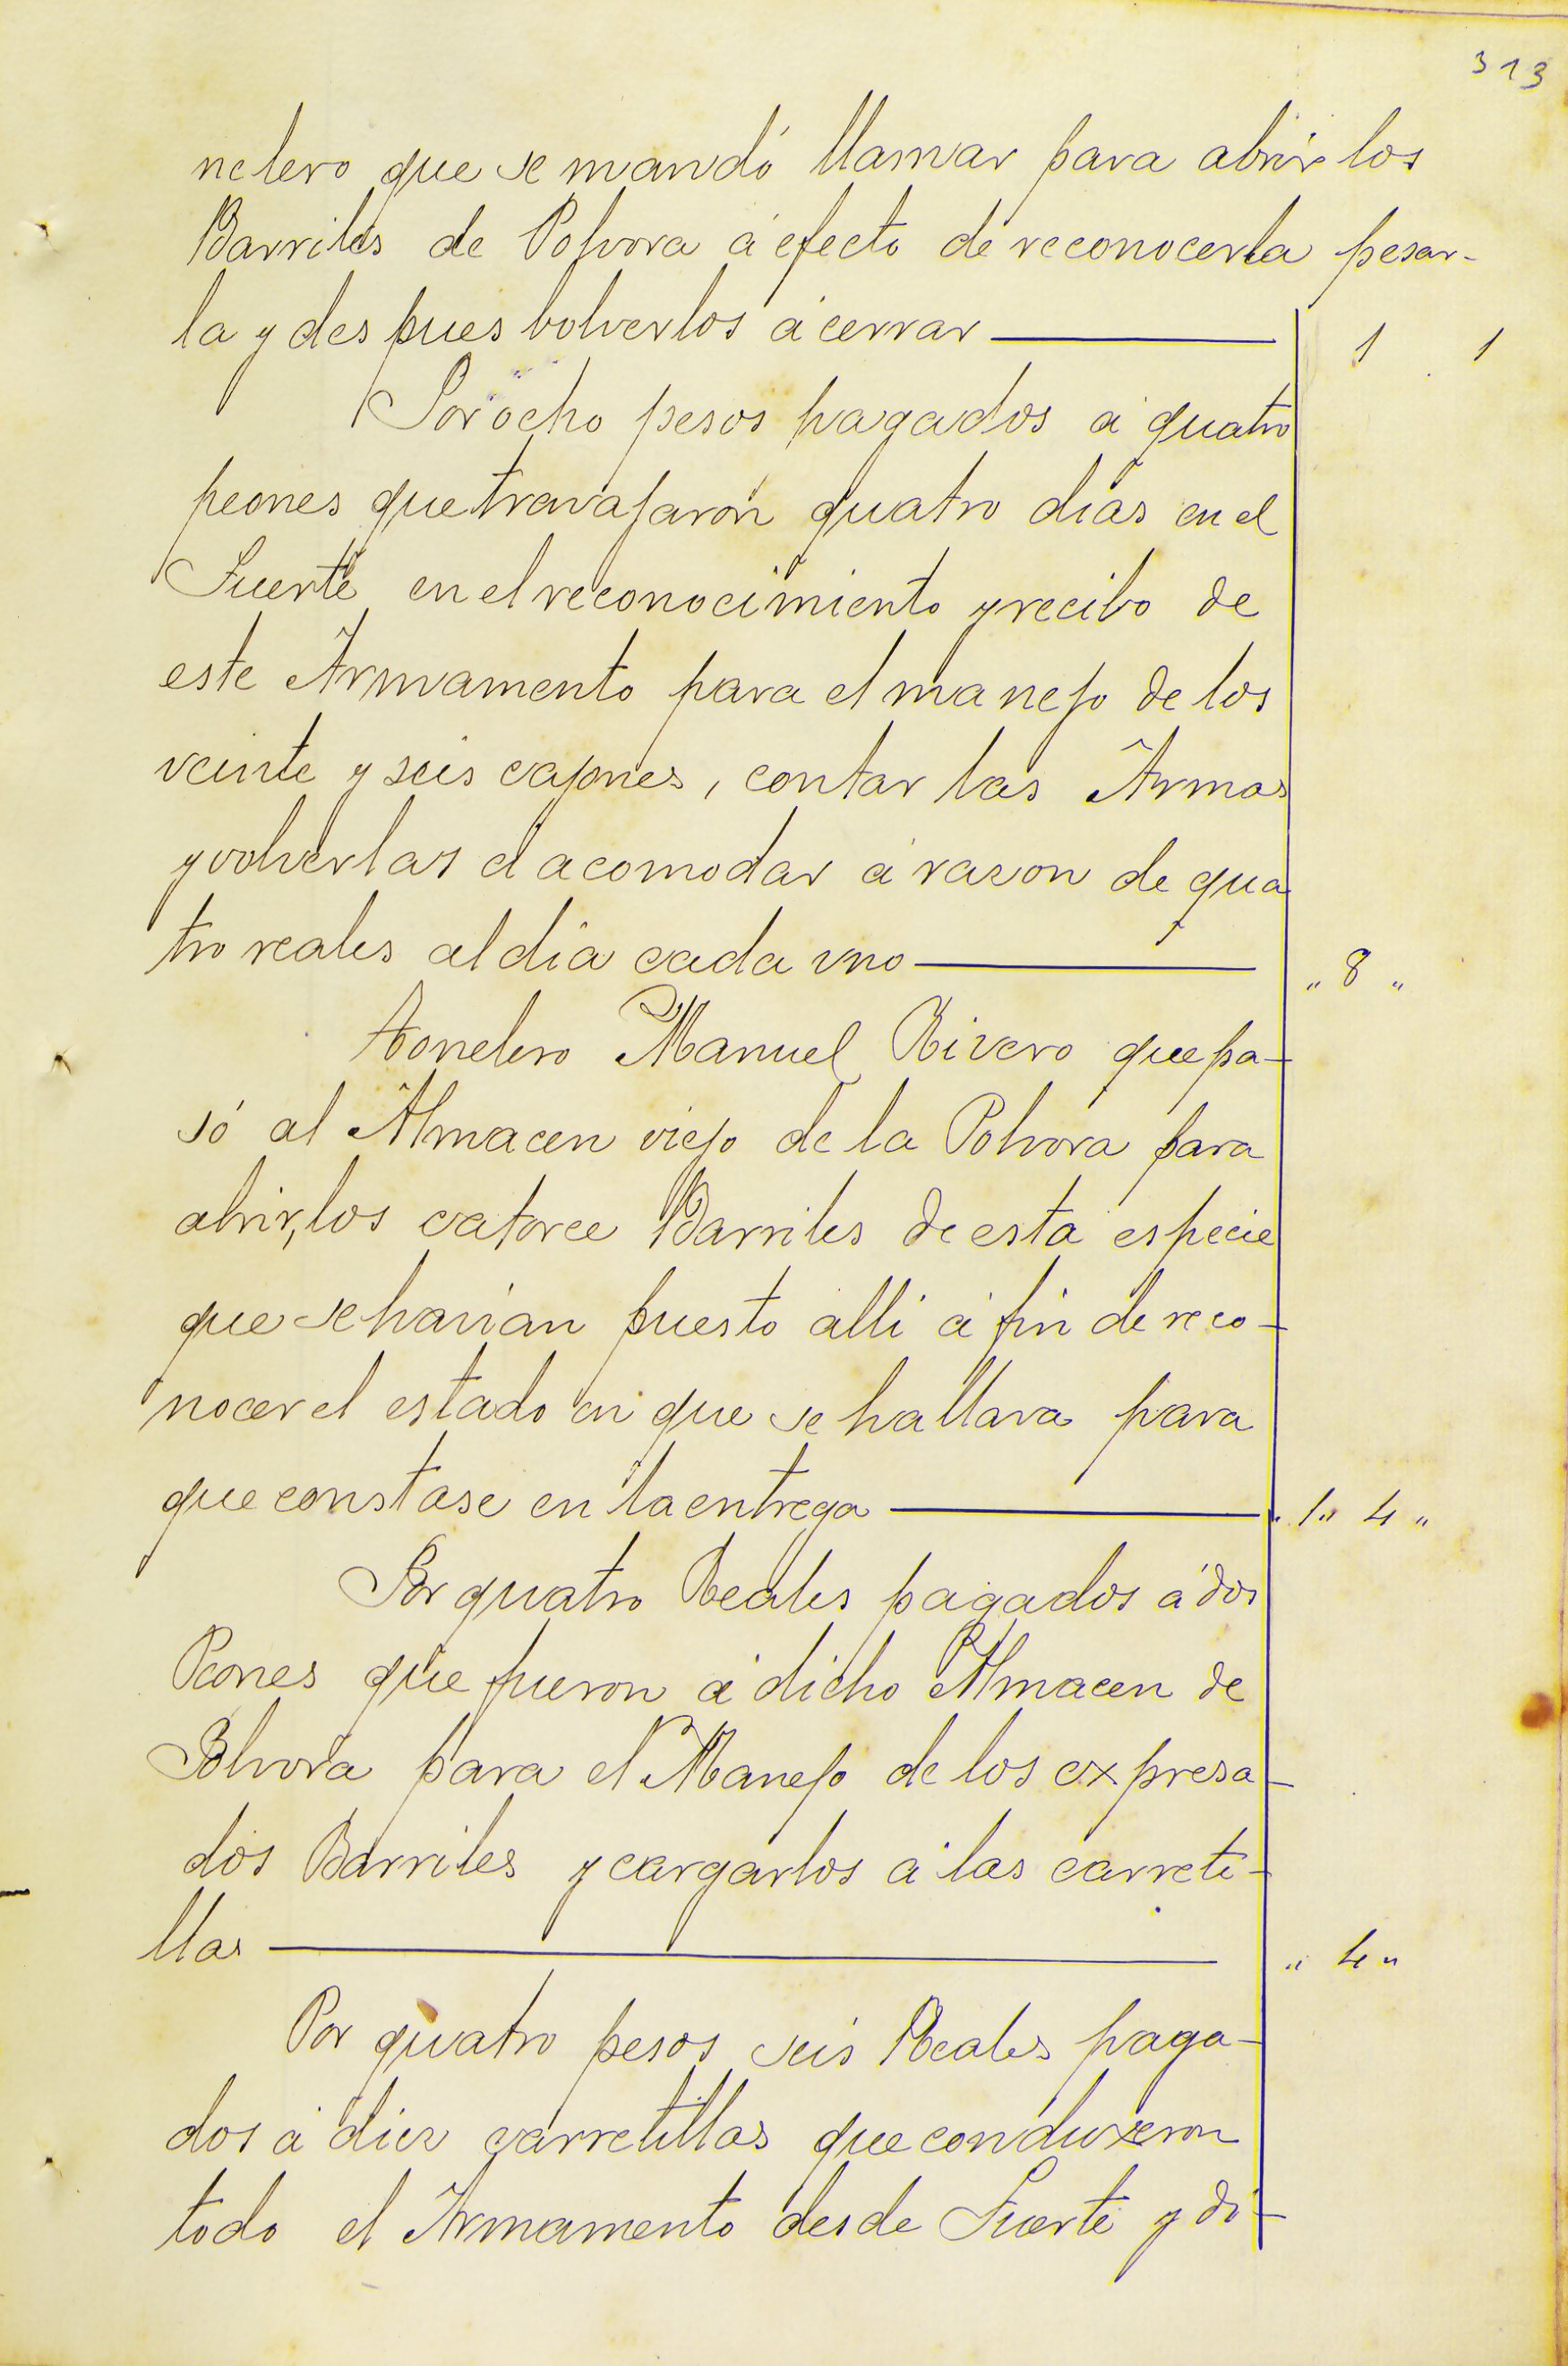 313
nelero que se mandó llamar para abrir los
Barriles de Polvora á efecto de reconocerla pesar-
la y despues bolverlos á cerrar 1 1
Por ocho pesos pagados á quatro
peones que travajaron quatro dias en el
Fuerte en el reconocimiento y recibo de
este Armamento para el manejo de los
veinte y seis cajones, contar las Armas
y volverlas á acomodar á razon de qua
tro reales al dia cada uno " 8 "
Tonelero Manuel Rivero que pa-
só al Almacen viejo de la Polvora para
abrir, los catorce Barriles de esta especie
que se havian puesto alli á fin de reco-
nocer el estado en que se hallava para
que constase en la entrega " 1 " 4 "
Por quatro Reales pagados á dos
Peones que fueron á dicho Almacen de
Polvora para el Manejo de los expresa-
dos Barriles y cargarlos á las carreti-
llas " 4 "
Por quatro pesos seis Reales paga-
dos á diez carretillas que conduxeron
todo el Armamento desde Fuerte y di-